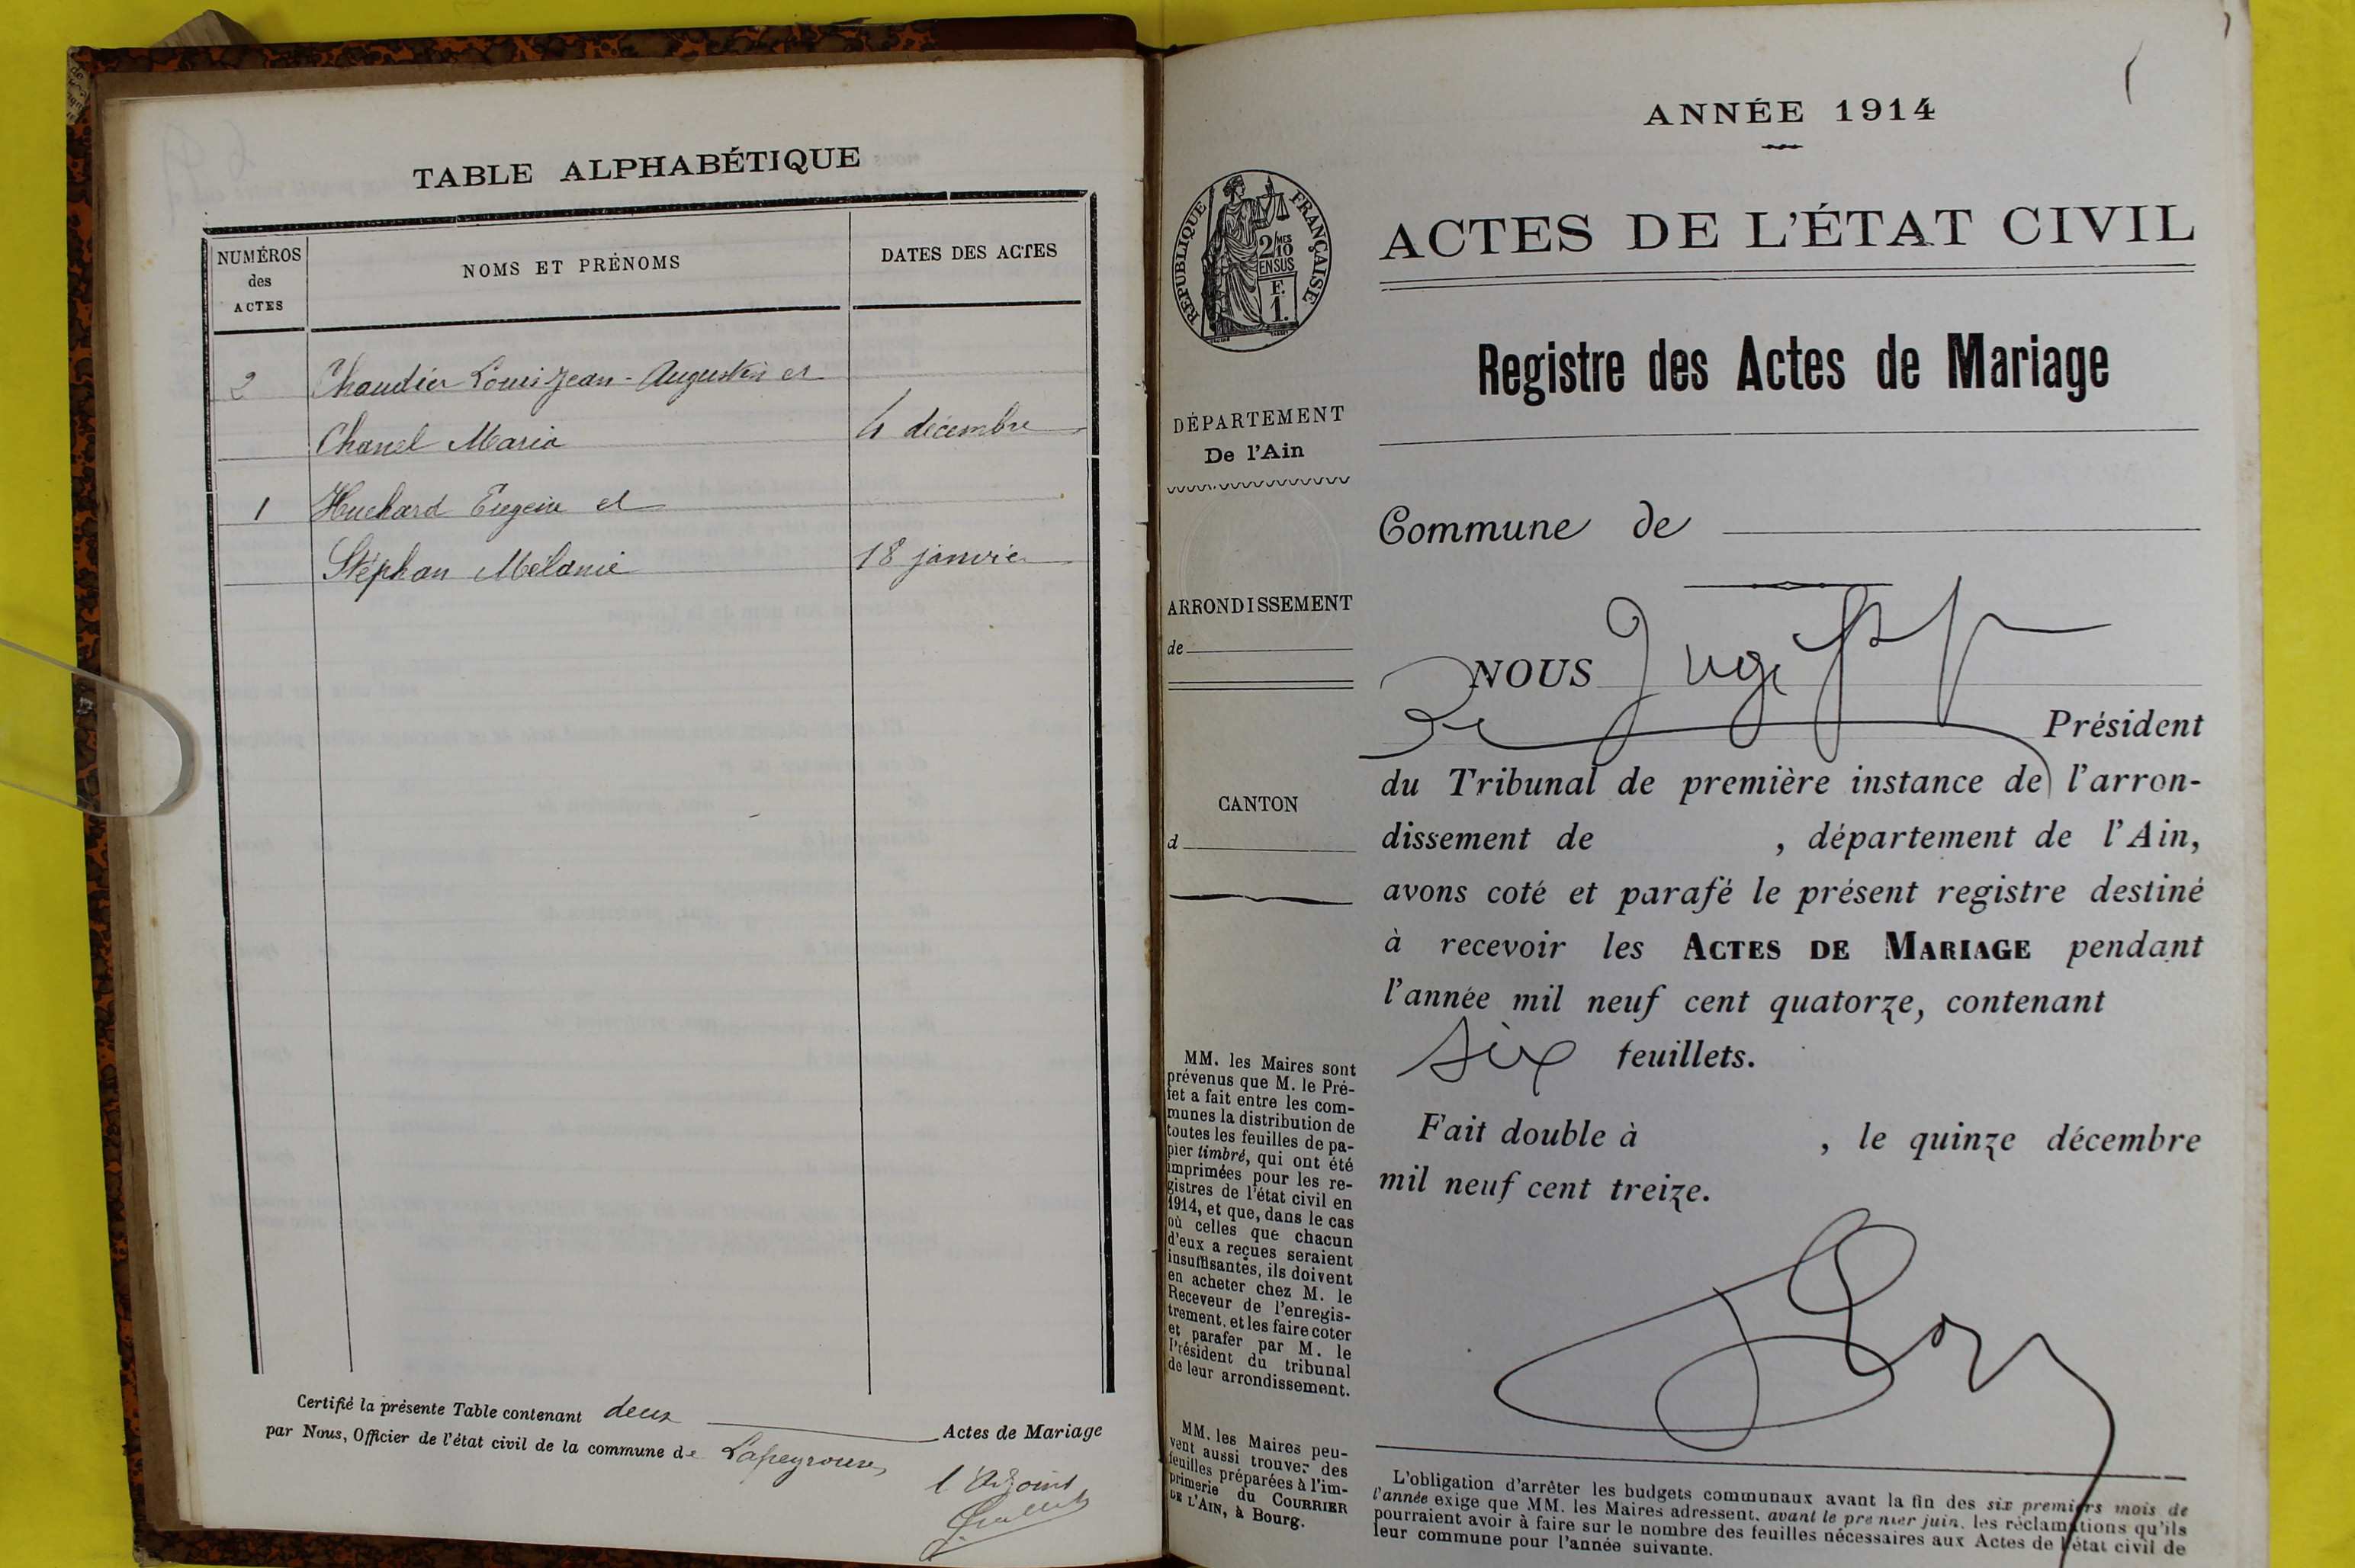 TABLE ALPHABÉTIQUE
NUMÉROS
des
ACTES
NOMS ET PRÉNOMS
DATES DES ACTES
2 Chaudier Louis Jean-Augustin et
Chanel Maria 4 décembre
1 Huchard Eugène et
Stéphan Mélanie 18 janvier
Certifié la présente Table contenant deux Actes de Mariage
par Nous, Officier de l'état civil de la commune de Lapeyrouse,
l'Adjoint
ANNÉE 1914
RÉPUBLIQUE FRANÇAISE
2/10 MES
EN SUS
F.
1.
ACTES DE L'ÉTAT CIVIL
Registre des Actes de Mariage
DÉPARTEMENT
De l'Ain
ARRONDISSEMENT
de
CANTON
d
MM. les Maires sont
prévenus que M. le Pré-
fet a fait entre les com-
munes la distribution de
toutes les feuilles de pa-
pier timbré, qui ont été
imprimées pour les re-
gistres de l'état civil en
1914, et que, dans le cas
où celles que chacun
d'eux a reçues seraient
insuffisantes, ils doivent
en acheter chez M. le
Receveur de l'enregis-
trement, et les faire coter
et parafer par M. le
Président du tribunal
de leur arrondissement.
MM. les Maires peu-
vent aussi trouver des
feuilles préparées à l'im-
primerie du COURRIER
DE L'AIN, à Bourg.
Commune de
NOUS Juge pp
Président
du Tribunal de première instance de l'arron-
dissement de , département de l'Ain,
avons coté et parafé le présent registre destiné
à recevoir les ACTES DE MARIAGE pendant
l'année mil neuf cent quatorze, contenant
six feuillets.
Fait double à , le quinze décembre
mil neuf cent treize.
L'obligation d'arrêter les budgets communaux avant la fin des six premiers mois de
l'année exige que MM. les Maires adressent, avant le premier juin, les réclamations qu'ils
pourraient avoir à faire sur le nombre des feuilles nécessaires aux Actes de l'état civil de
leur commune pour l'année suivante.